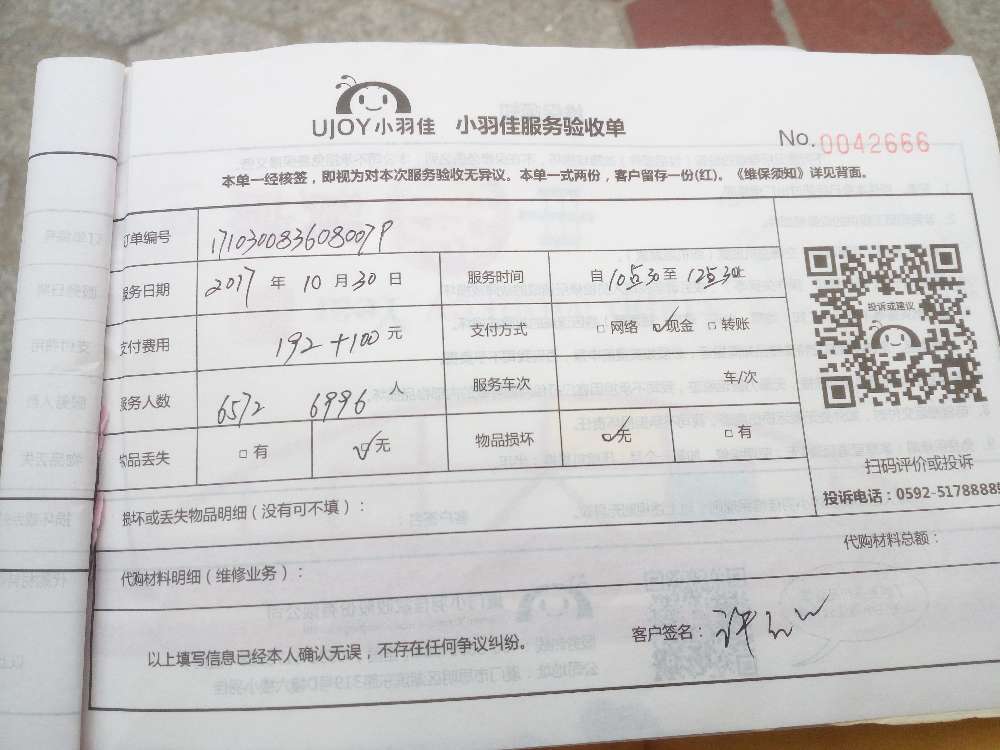 UJOY小羽佳 小羽佳服务验收单
No. 0042666
本单一经核签，即视为对本次服务验收无异议。本单一式两份，客户留存一份(红)。《维保须知》详见背面。
订单编号 171030083608007P
服务日期 2017 年 10 月 30 日 服务时间 自 10点30 至 12点30 止
支付费用 192+100 元 支付方式 □ 网络 ☑ 现金 □ 转账
服务人数 6572 6996 人 服务车次 车/次
物品丢失 □ 有 ☑ 无 物品损坏 ☑ 无 □ 有
投诉或建议
扫码评价或投诉
投诉电话：0592-5178888
损坏或丢失物品明细（没有可不填）：
代购材料明细（维修业务）： 代购材料总额：
以上填写信息已经本人确认无误，不存在任何争议纠纷。 客户签名： 许